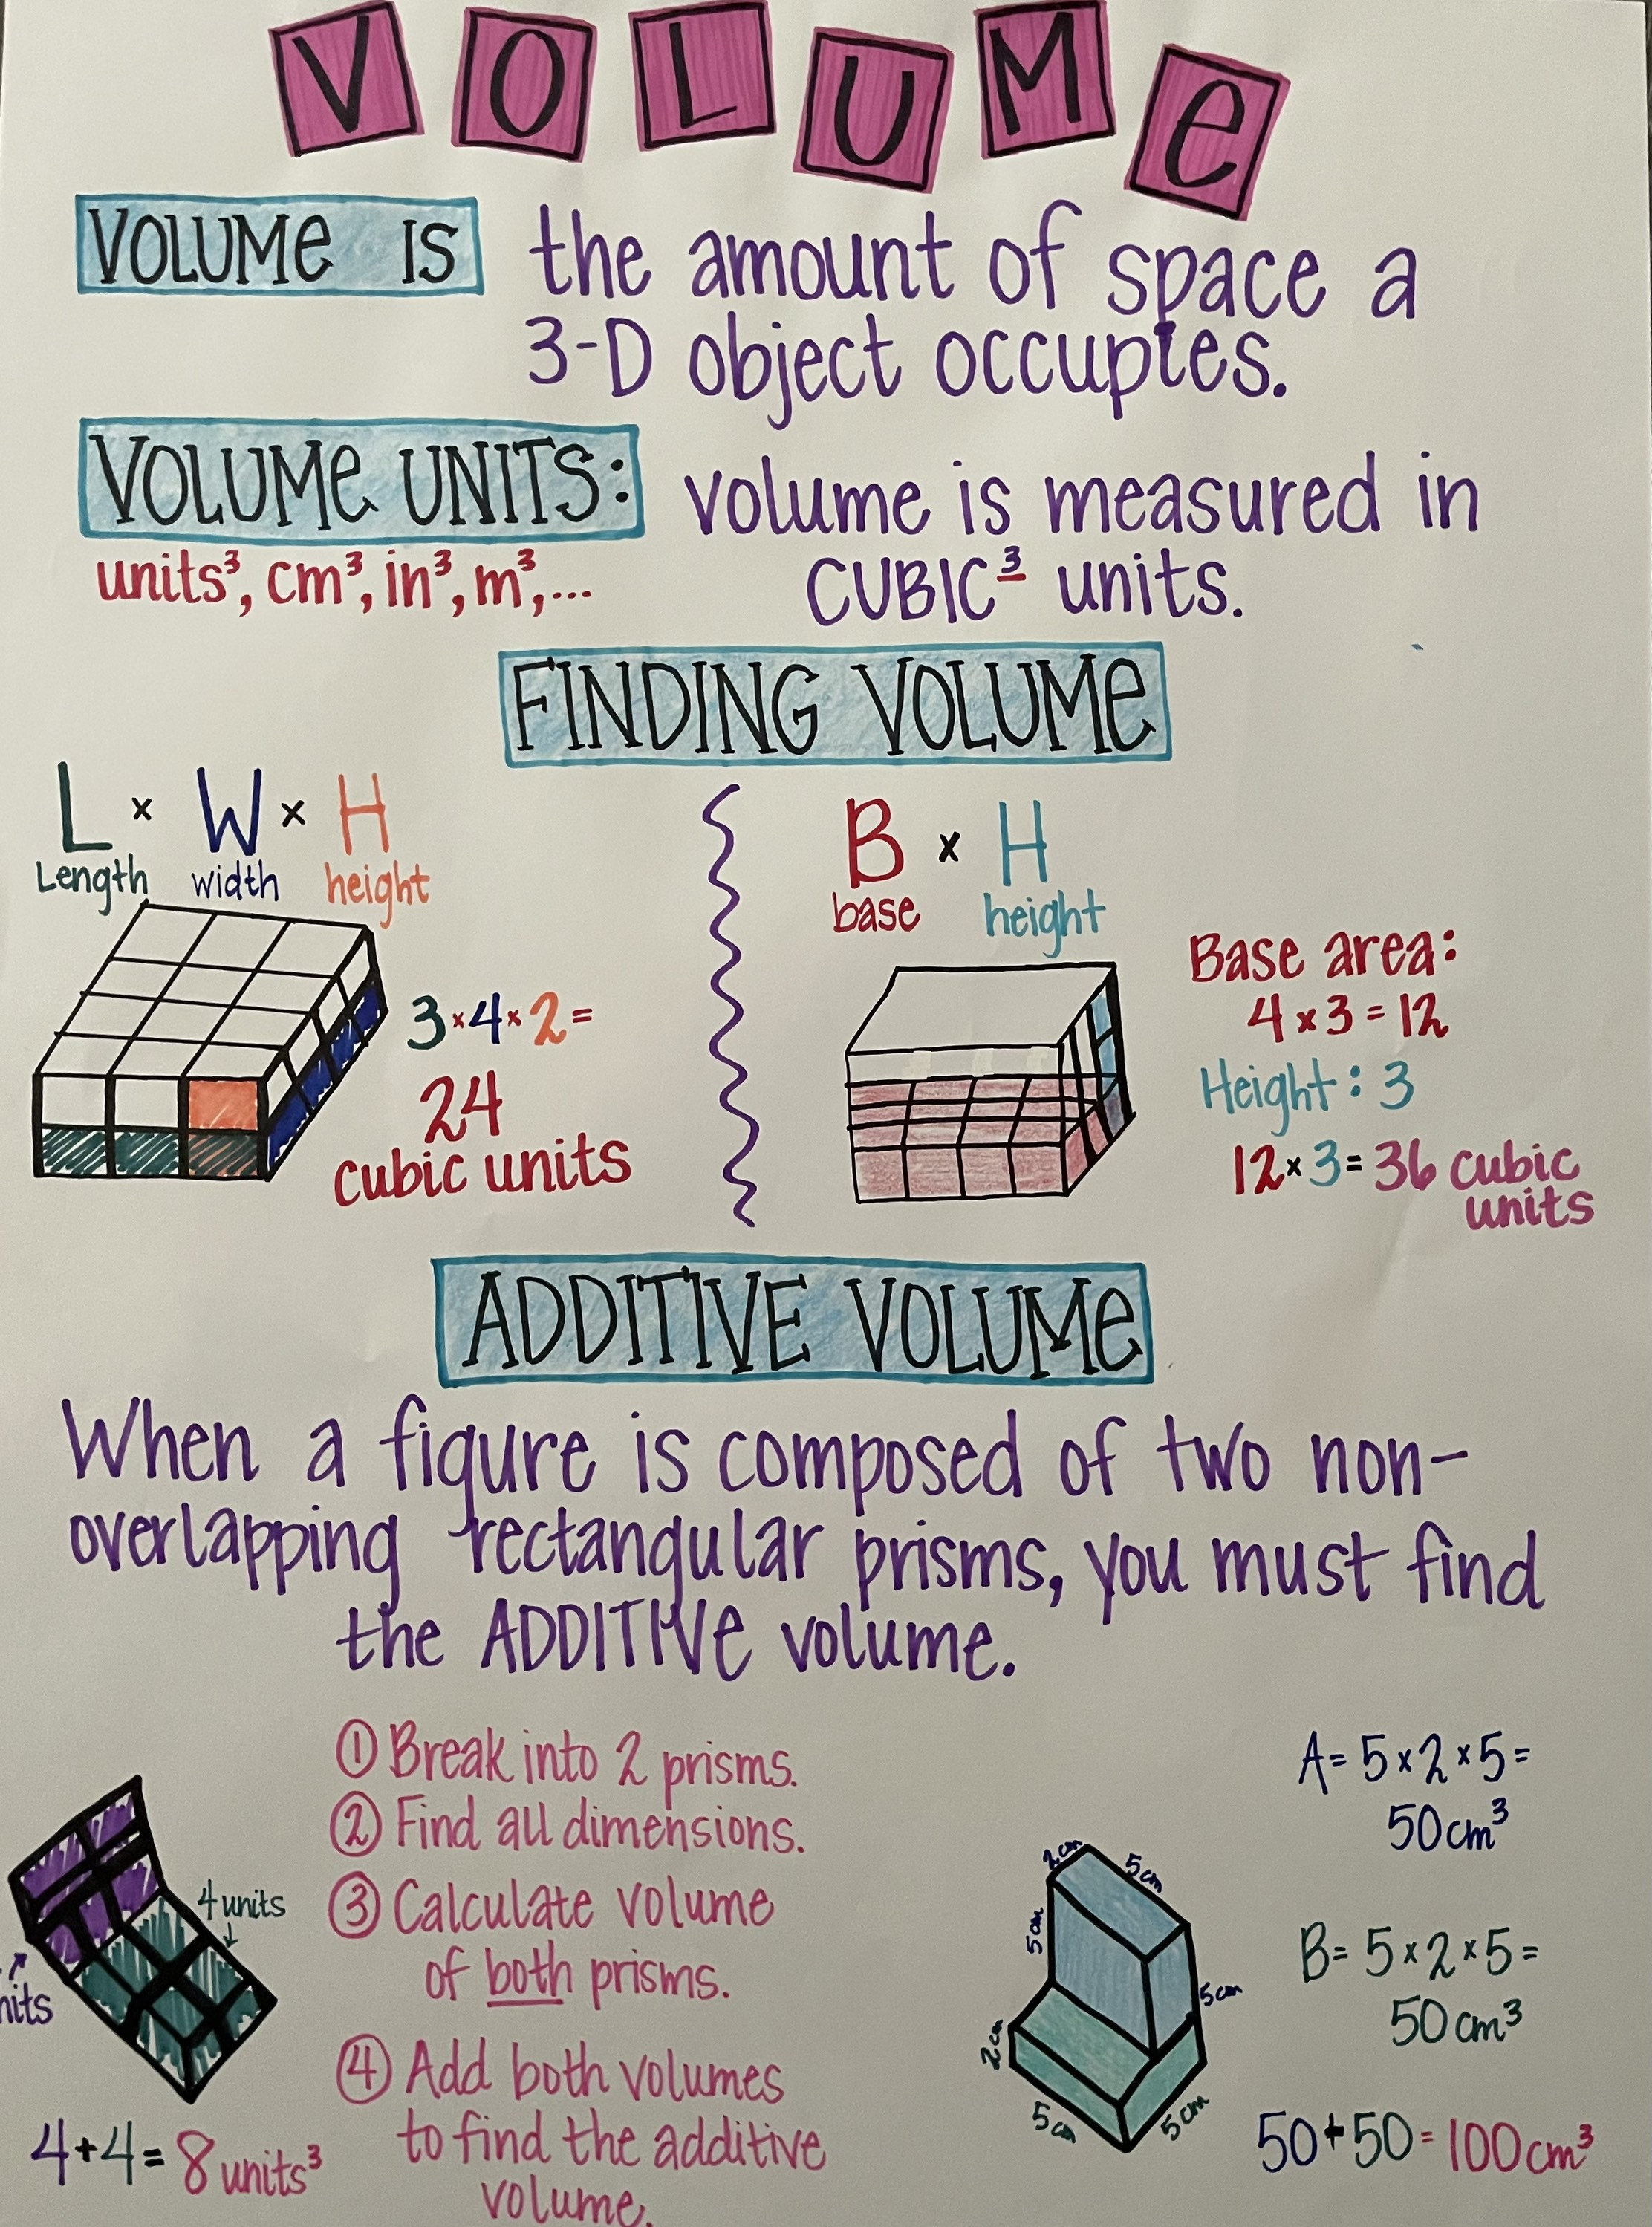 VOLUMe
VOLUMe IS the amount of space a
3-D object occupies.
VOLUMe UNITS: volume is measured in
CUBIC³ units.
units³, cm³, in³, m³,...
FINDING VOLUMe
L × W × H
Length width height
3×4×2=
24
cubic units
B × H
base height
Base area:
4×3=12
Height: 3
12×3=36 cubic
units
ADDITIVE VOLUMe
When a figure is composed of two non-
overlapping rectangular prisms, you must find
the ADDITIVe volume.
4 units
4+4=8 units³
① Break into 2 prisms.
② Find all dimensions.
③ Calculate volume
of both prisms.
④ Add both volumes
to find the additive
volume.
2cm
5cm
5cm
5cm
2cm
5cm
5cm
A=5×2×5=
50cm³
B=5×2×5=
50cm³
50+50=100cm³